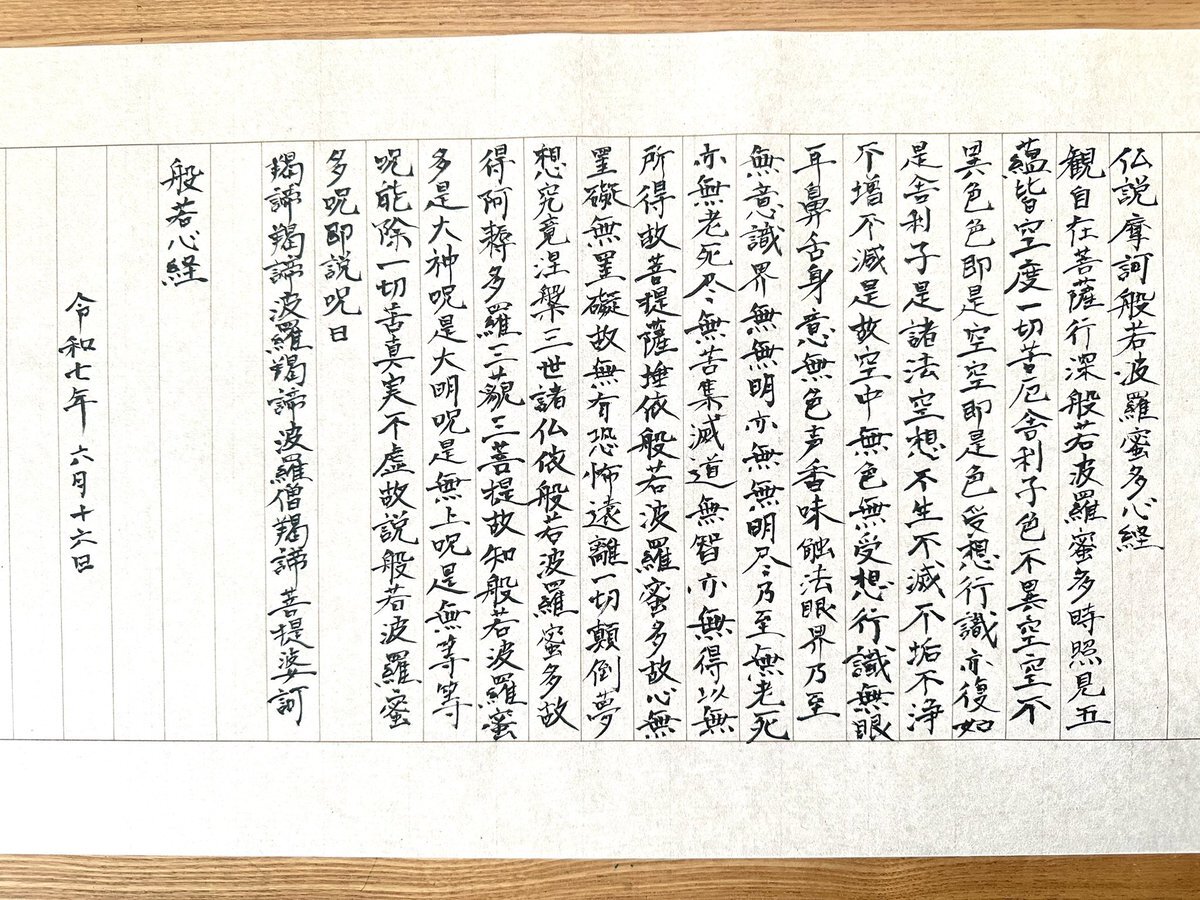 仏説摩訶般若波羅蜜多心経
観自在菩薩行深般若波羅蜜多時照見五
蘊皆空度一切苦厄舎利子色不異空空不
異色色即是空空即是色受想行識亦復如
是舎利子是諸法空想不生不滅不垢不浄
不増不減是故空中無色無受想行識無眼
耳鼻舌身意無色声香味触法眼界乃至
無意識界無無明亦無無明尽乃至無老死
亦無老死尽無苦集滅道無智亦無得以無
所得故菩提薩埵依般若波羅蜜多故心無
罣礙無罣礙故無有恐怖遠離一切顛倒夢
想究竟涅槃三世諸仏依般若波羅蜜多故
得阿耨多羅三藐三菩提故知般若波羅蜜
多是大神呪是大明呪是無上呪是無等等
呪能除一切苦真実不虚故説般若波羅蜜
多呪即説呪曰
羯諦羯諦波羅羯諦波羅僧羯諦菩提婆訶
般若心経
令和七年六月十六日